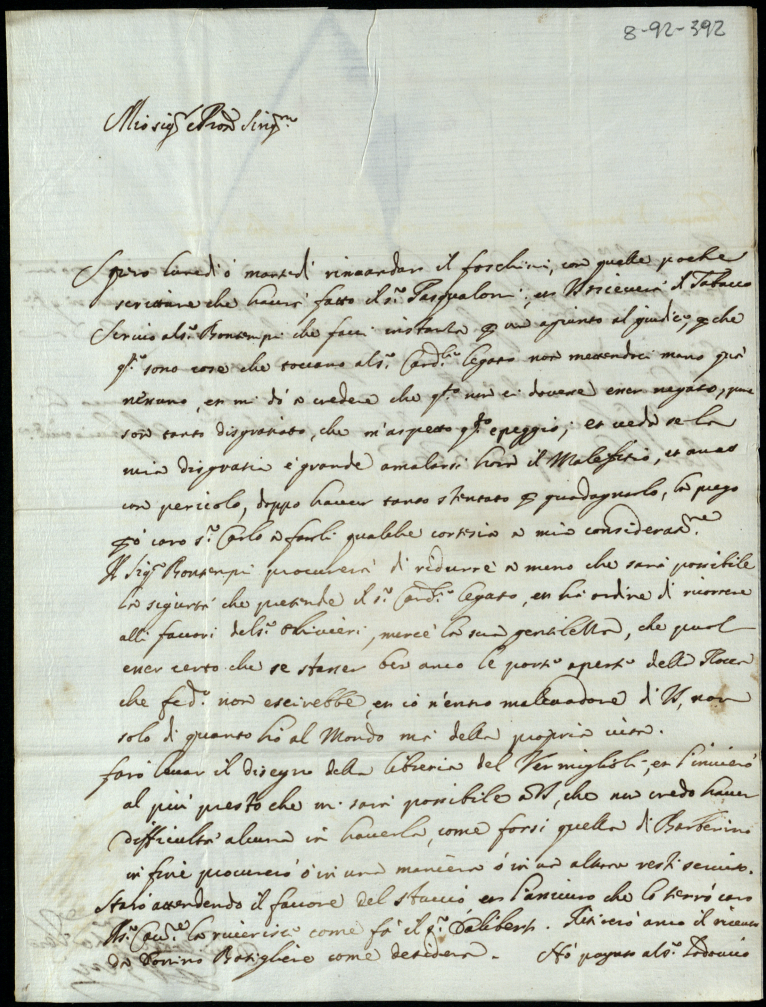 8-92-392
Mio sig.r e Pron Sing.mo
Spero lunedì ò martedì rimandar il foschini, con quelle poche
scritture che haverà fatto il s.r Pasqualoni, et V.S. riceverà il Tabacco
Scrivo al s.r Bontempi che facci instanza un agiunto al giudice, che
q.te sono cose che toccano al s.r Card.le legato non mettendoci mano quà
nesuno, et mi dò a credere che q.to non ci dovesse esser negato, pure
son tanto disgratiato, che m'aspetto q.to e peggio; et veda se la
mia disgratia è grande amalarsi hora il Malefitio, et anco
con pericolo, doppo haver tanto stentato guadagnarlo, la prego
però caro s.r Carlo a farli qualche cortesia a mia consideraz.ne
Il Sig.r Bontempi procurerà di ridurre a meno che sarà possibile
la sigurtà che pretende il s.r Card.le legato, et hà ordine di ricorrere
alli favori del s.r Olivieri, mercè la sua gentilezza, che puol
esser certo che se stasser ben anco le porte aperte della Rocca
che fed.co non escirebbe, et io n'entro malevadore di V.S., non
solo di quanto hò al Mondo mà della propria vita.
farò levar il disegno della libreria del Vermiglioli, et l'invierò
al più presto che mi sarà possibile a V.S., che non credo haver
difficultà alcuna in haverla, come forsi quella di Barberino
in fine procurerò ò in una maniera ò in un altra resti servito.
Starò attendendo il favore del stuccio et l'aviso che lo terrò caro
la riverisce come fà il s.r Daliberti. Ritirerò anco il
da Bottigliere come desidera. Hò pagato al s.r Lodovico